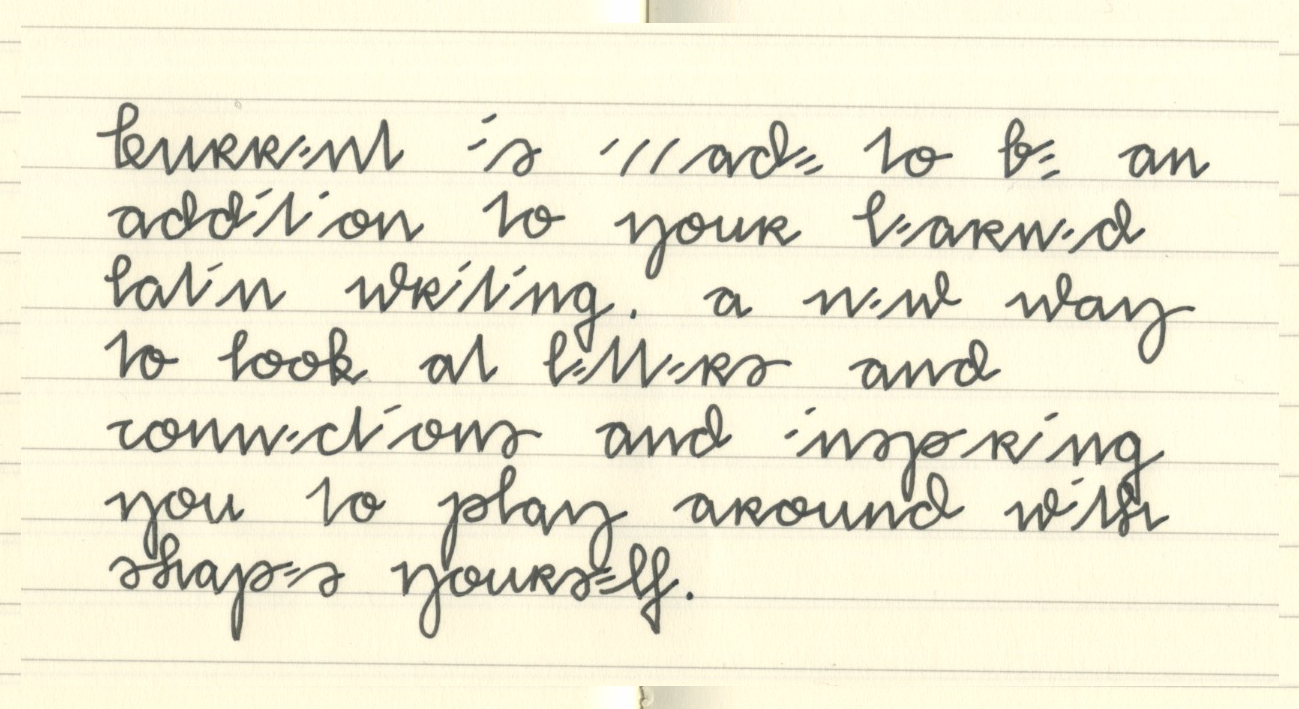 kurrent is made to be an
addition to your learned
latin writing. a new way
to look at letters and
connections and inspiring
you to play around with
shapes yourself.